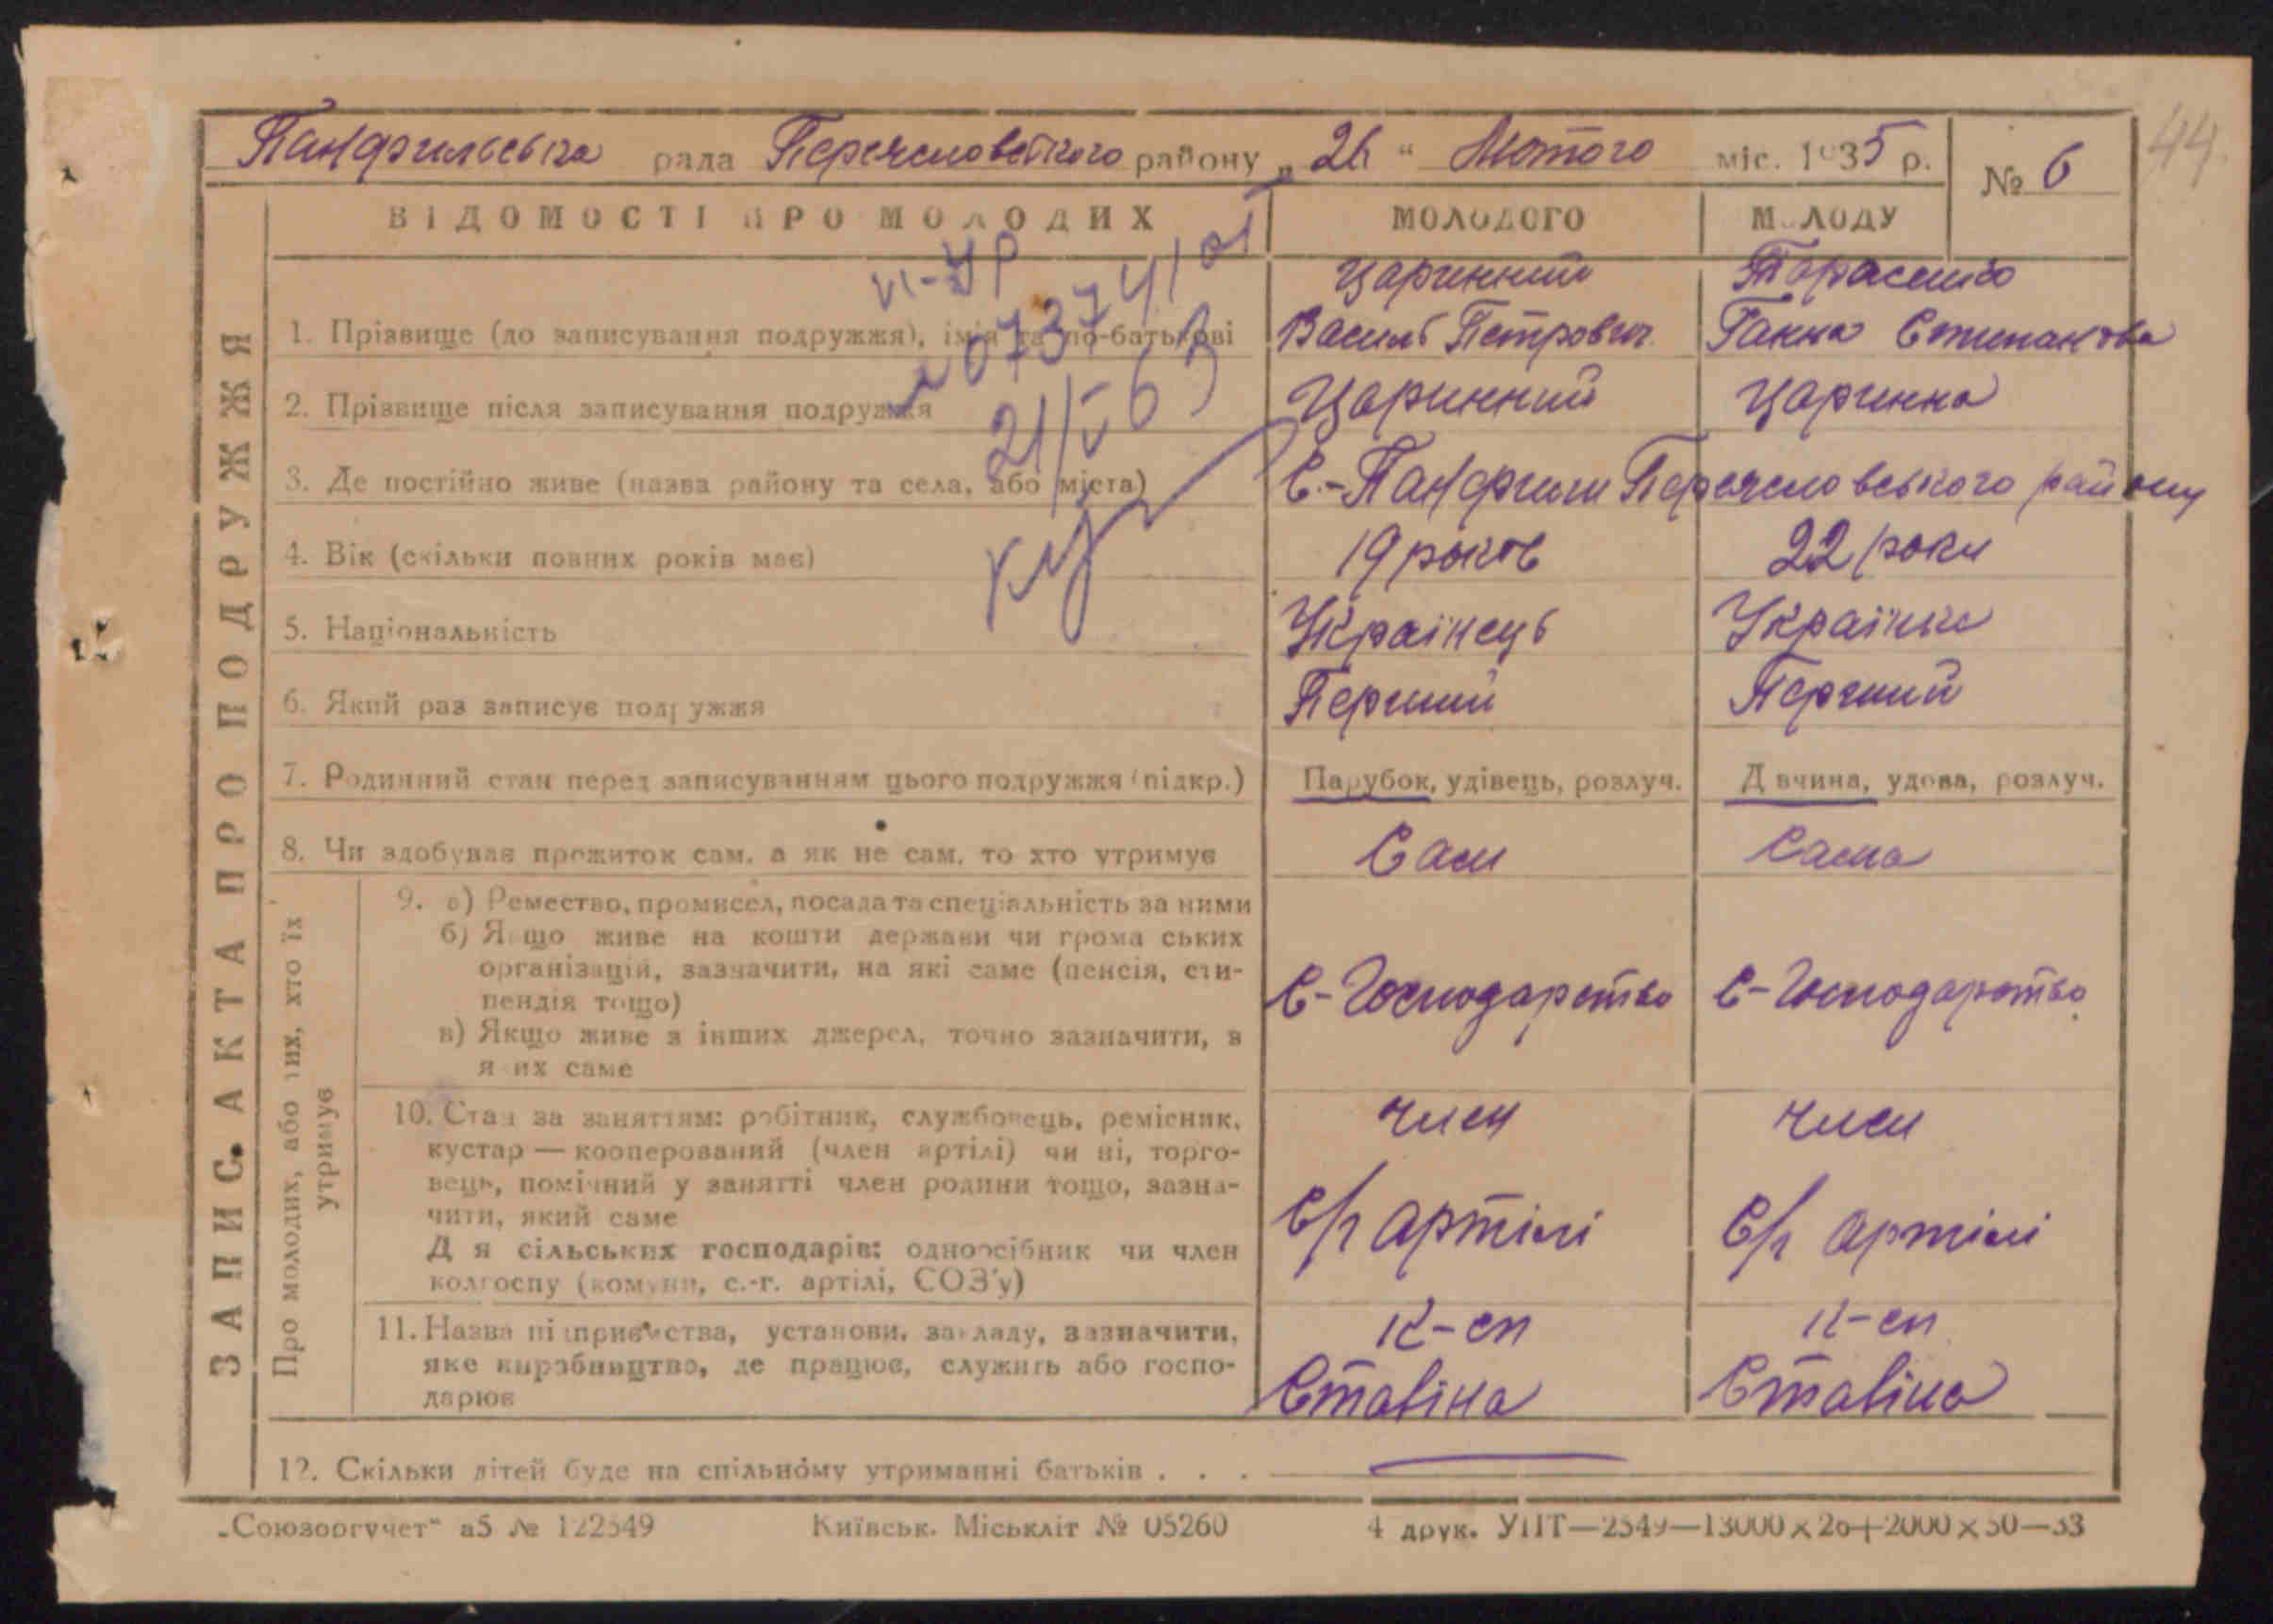 44.
Панфильська рада Переяславського району „26" Лютого міс. 1935 р. № 6
ВІДОМОСТІ ПРО МОЛОДИХ МОЛОДОГО МОЛОДУ
Царинний Тарасенко
1. Прізвище (до записування подружжя), ім'я та по-батькові Василь Петрович Ганна Степановa
2. Прізвище після записування подружжя Царинний Царинна
21/V 63
3. Де постійно живе (назва району та села, або міста) С.-Панфили Переяславського району
4. Вік (скільки повних років має) 19 років 22 роки
5. Національність Українець Українка
6. Який раз записує подружжя Перший Перший
7. Родинний стан перед записуванням цього подружжя (підкр.) Парубок, удівець, розлуч. Дівчина, удова, розлуч.
8. Чи здобував прожиток сам, а як не сам, то хто утримує Сам Сама
ЗАПИС АКТА ПРО ПОДРУЖЖЯ
Про молодих, або тих, хто їх утримує
9. а) Ремество, промисел, посада та спеціяльність за ними
б) Якщо живе на кошти держави чи громадських
організацій, зазначити, на які саме (пенсія, сти-
пендія тощо) С-Господарство С-Господарство
в) Якщо живе з інших джерел, точно зазначити, з
яких саме
10. Стан за заняттям: робітник, службовець, ремісник, член член
кустар — кооперований (член артілі) чи ні, торго-
вець, помічний у занятті член родини тощо, зазна-
чити, який саме С/г артілі С/г артілі
Для сільських господарів: одноосібник чи член
колгоспу (комуни, с.-г. артілі, СОЗ'у)
11. Назва підприємства, установи, закладу, зазначити, к-сп к-сп
яке виробництво, де працює, служить або госпо-
дарює Сталіна Сталіна
12. Скільки дітей буде на спільному утриманні батьків . . .
„Союзоргучет" а5 № 122549 Київськ. Міськліт № 05260 4 друк. УПТ—2549—13000×26+2000×50—33